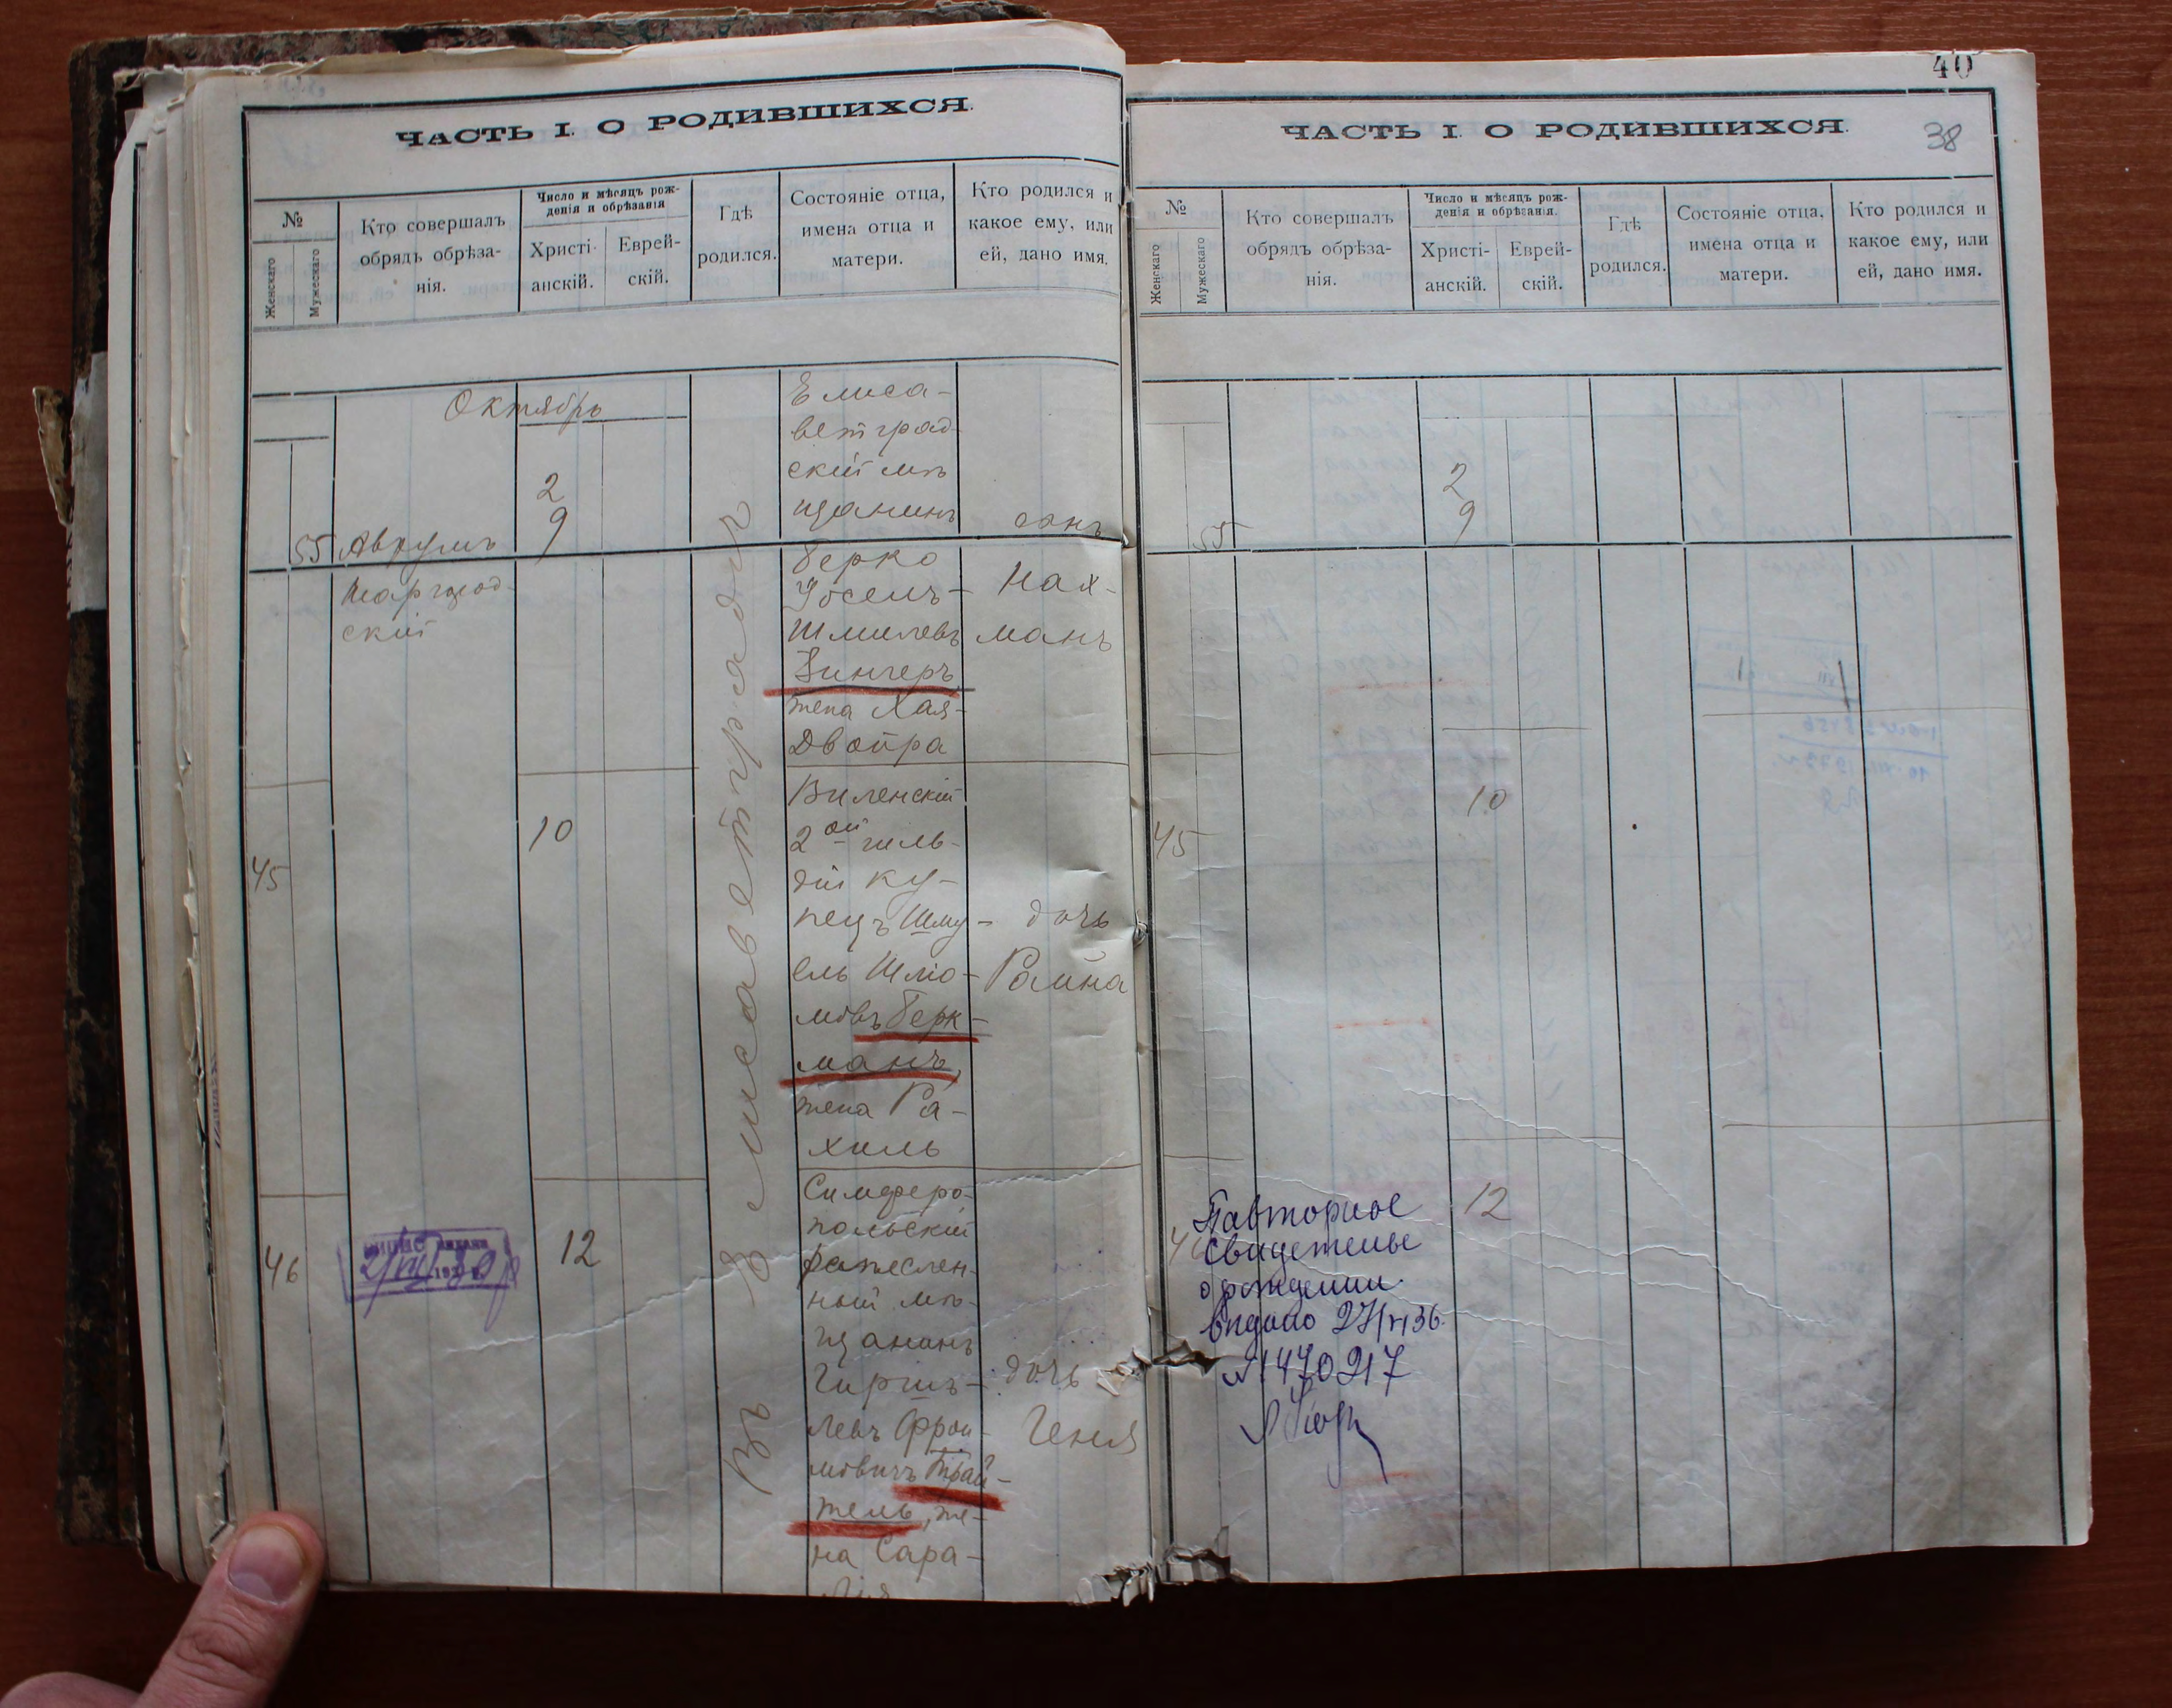 ЧАСТЬ I. О РОДИВШИХСЯ.
№
Женскаго
Мужескаго
Кто совершалъ
обрядъ обрѣза-
нія.
Число и мѣсяцъ рож-
денія и обрѣзанія
Христі-
анскій.
Еврей-
скій.
Гдѣ
родился.
Состояніе отца,
имена отца и
матери.
Кто родился и
какое ему, или
ей, дано имя.
Октябрь
55
Аврумъ
Шаргород-
скій
2
9
Въ Елисаветградѣ
Елиса-
ветград-
скій мѣ-
щанинъ
Берко
Іосель-
Шмилевъ
Зингеръ,
жена Хая-
Двойра
сынъ
Нах-
манъ
45
10
Виленскій
2ой гиль-
діи ку-
пецъ Шму-
ель Шліо-
мовъ Берк-
манъ,
жена Ра-
хиль
дочь
Раина
46
12
Симферо-
польскій
ремеслен-
ный мѣ-
щанинъ
Гиршъ-
Левъ Фрои-
мовичъ Трай-
тель, же-
на Сара-
Лія
дочь
Геня
40
ЧАСТЬ I. О РОДИВШИХСЯ.
38
№
Женскаго
Мужескаго
Кто совершалъ
обрядъ обрѣза-
нія.
Число и мѣсяцъ рож-
денія и обрѣзанія.
Христі-
анскій.
Еврей-
скій.
Гдѣ
родился.
Состояніе отца,
имена отца и
матери.
Кто родился и
какое ему, или
ей, дано имя.
55
2
9
45
10
46
12
Павторное
свидетелье
о рождении
видано 27/VI 36
№ 1470217